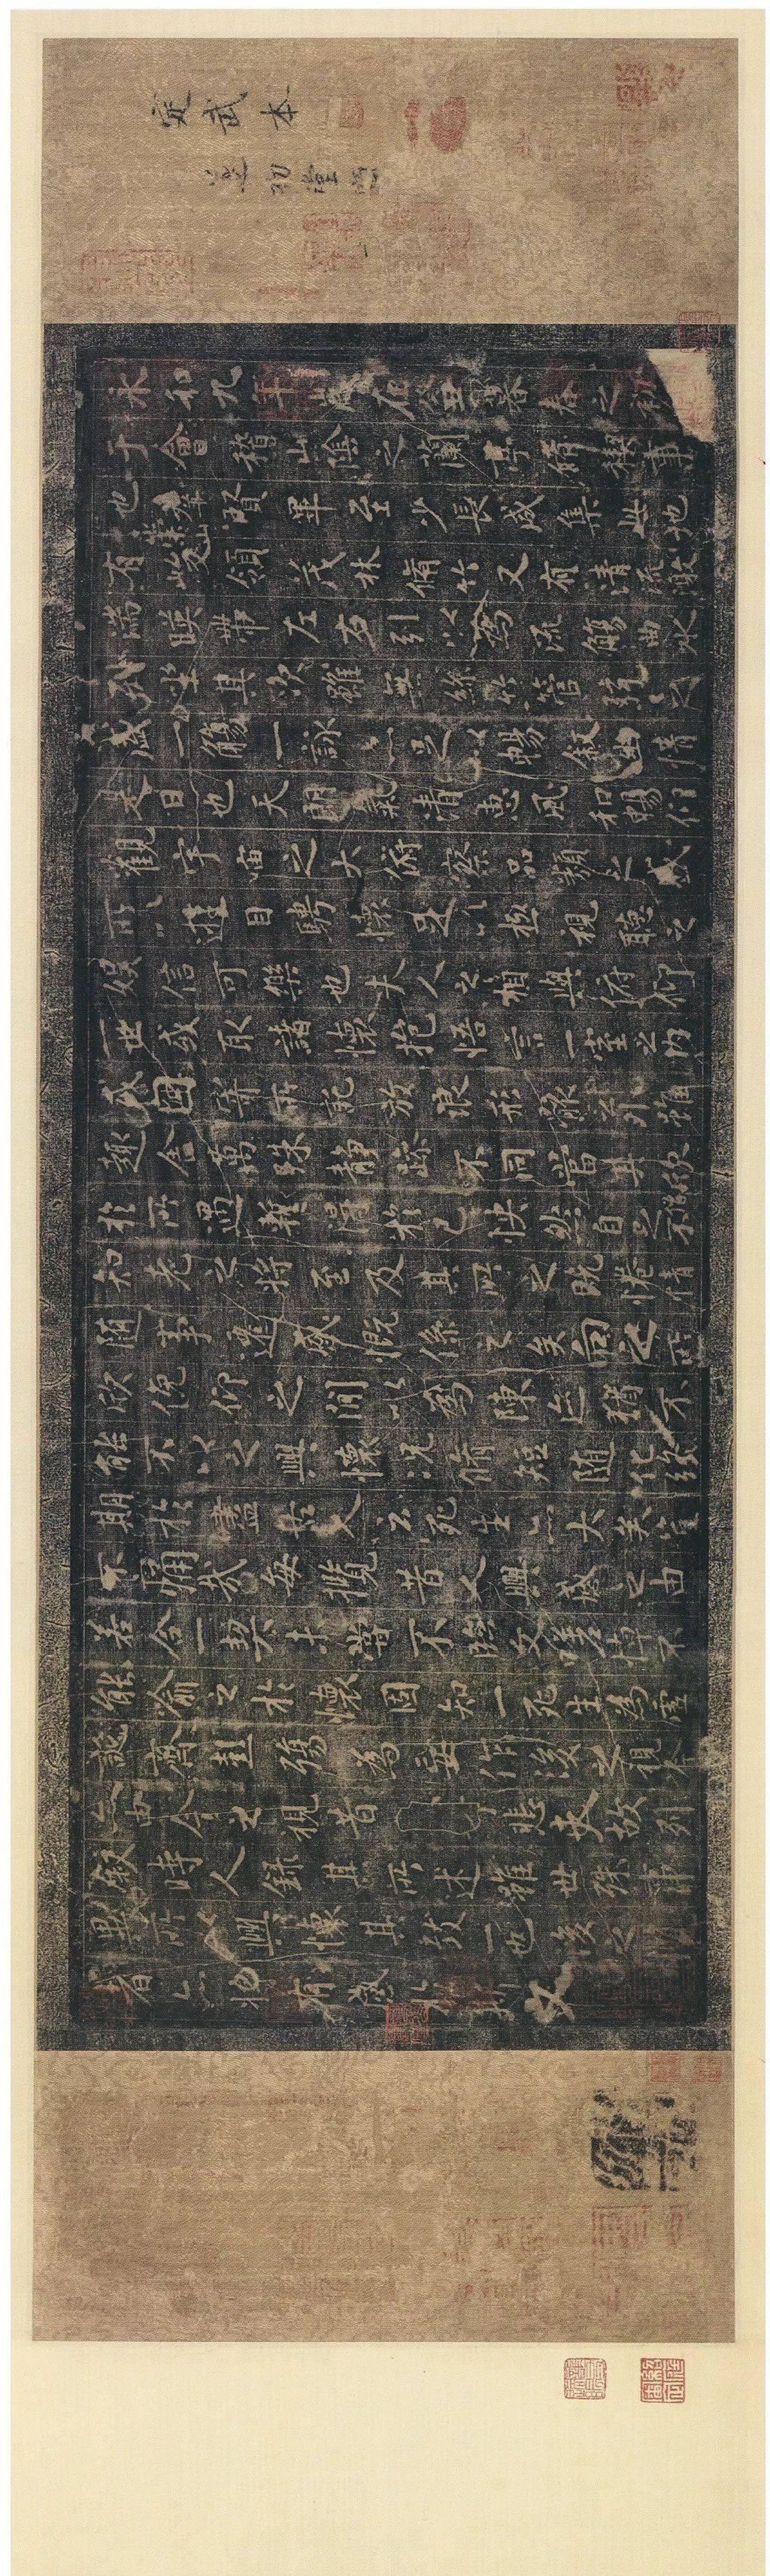 定武本
初堂
永和九年歲在癸丑暮春之初
于會稽山陰之蘭亭脩稧事
也羣賢畢至少長咸集此地
有崇山峻領茂林脩竹又有清流激
湍暎帶左右引以為流觴曲水
列坐其次雖無絲竹管弦之
盛一觴一詠亦足以暢敘幽情
是日也天朗氣清惠風和暢仰
觀宇宙之大俯察品類之盛
所以遊目騁懷足以極視聽之
娛信可樂也夫人之相與俯仰
一世或取諸懷抱悟言一室之內
或因寄所託放浪形骸之外雖
趣舍萬殊靜躁不同當其欣
於所遇暫得於己怏然自足不
知老之將至及其所之既惓情
隨事遷感慨係之矣向之所
欣俛仰之間以為陳迹猶不
能不以之興懷況脩短隨化終
期於盡古人云死生亦大矣豈
不痛哉每攬昔人興感之由
若合一契未嘗不臨文嗟悼不
能喻之於懷固知一死生為虛
誕齊彭殤為妄作後之視今
亦由今之視昔悲夫故列
敘時人錄其所述雖世殊事
異所以興懷其致一也後之攬
者亦將有感於斯文